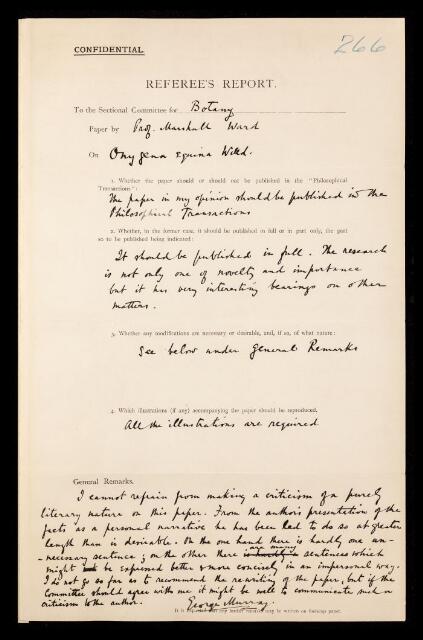 CONFIDENTIAL
266
REFEREE'S REPORT.
To the Sectional Committee for Botany
Paper by Prof. Marshall Ward
On Onygena equina Willd.
1. Whether the paper should or should not be published in the "Philosophical
Transactions":
The paper in my opinion should be published in the
Philosophical Transactions
2. Whether, in the former case, it should be published in full or in part only, the part
so to be published being indicated:
It should be published in full. The research
is not only one of novelty and importance
but it has very interesting bearings on other
matters.
3. Whether any modifications are necessary or desirable, and, if so, of what nature:
See below under General Remarks
4. Which illustrations (if any) accompanying the paper should be reproduced.
All the illustrations are required
General Remarks.
I cannot refrain from making a criticism of a purely
literary nature on this paper. From the author's presentation of the
facts as a personal narrative he has been led to do so at greater
length than is desirable. On the one hand there is hardly one un-
-necessary sentence; on the other there are many sentences which
might be expressed better & more concisely in an impersonal way.
I do not go so far as to recommend the rewriting of the paper, but if the
Committee should agree with me it might be well to communicate such a
criticism to the author.
George Murray.
It is requested that any further remarks may be written on foolscap paper.